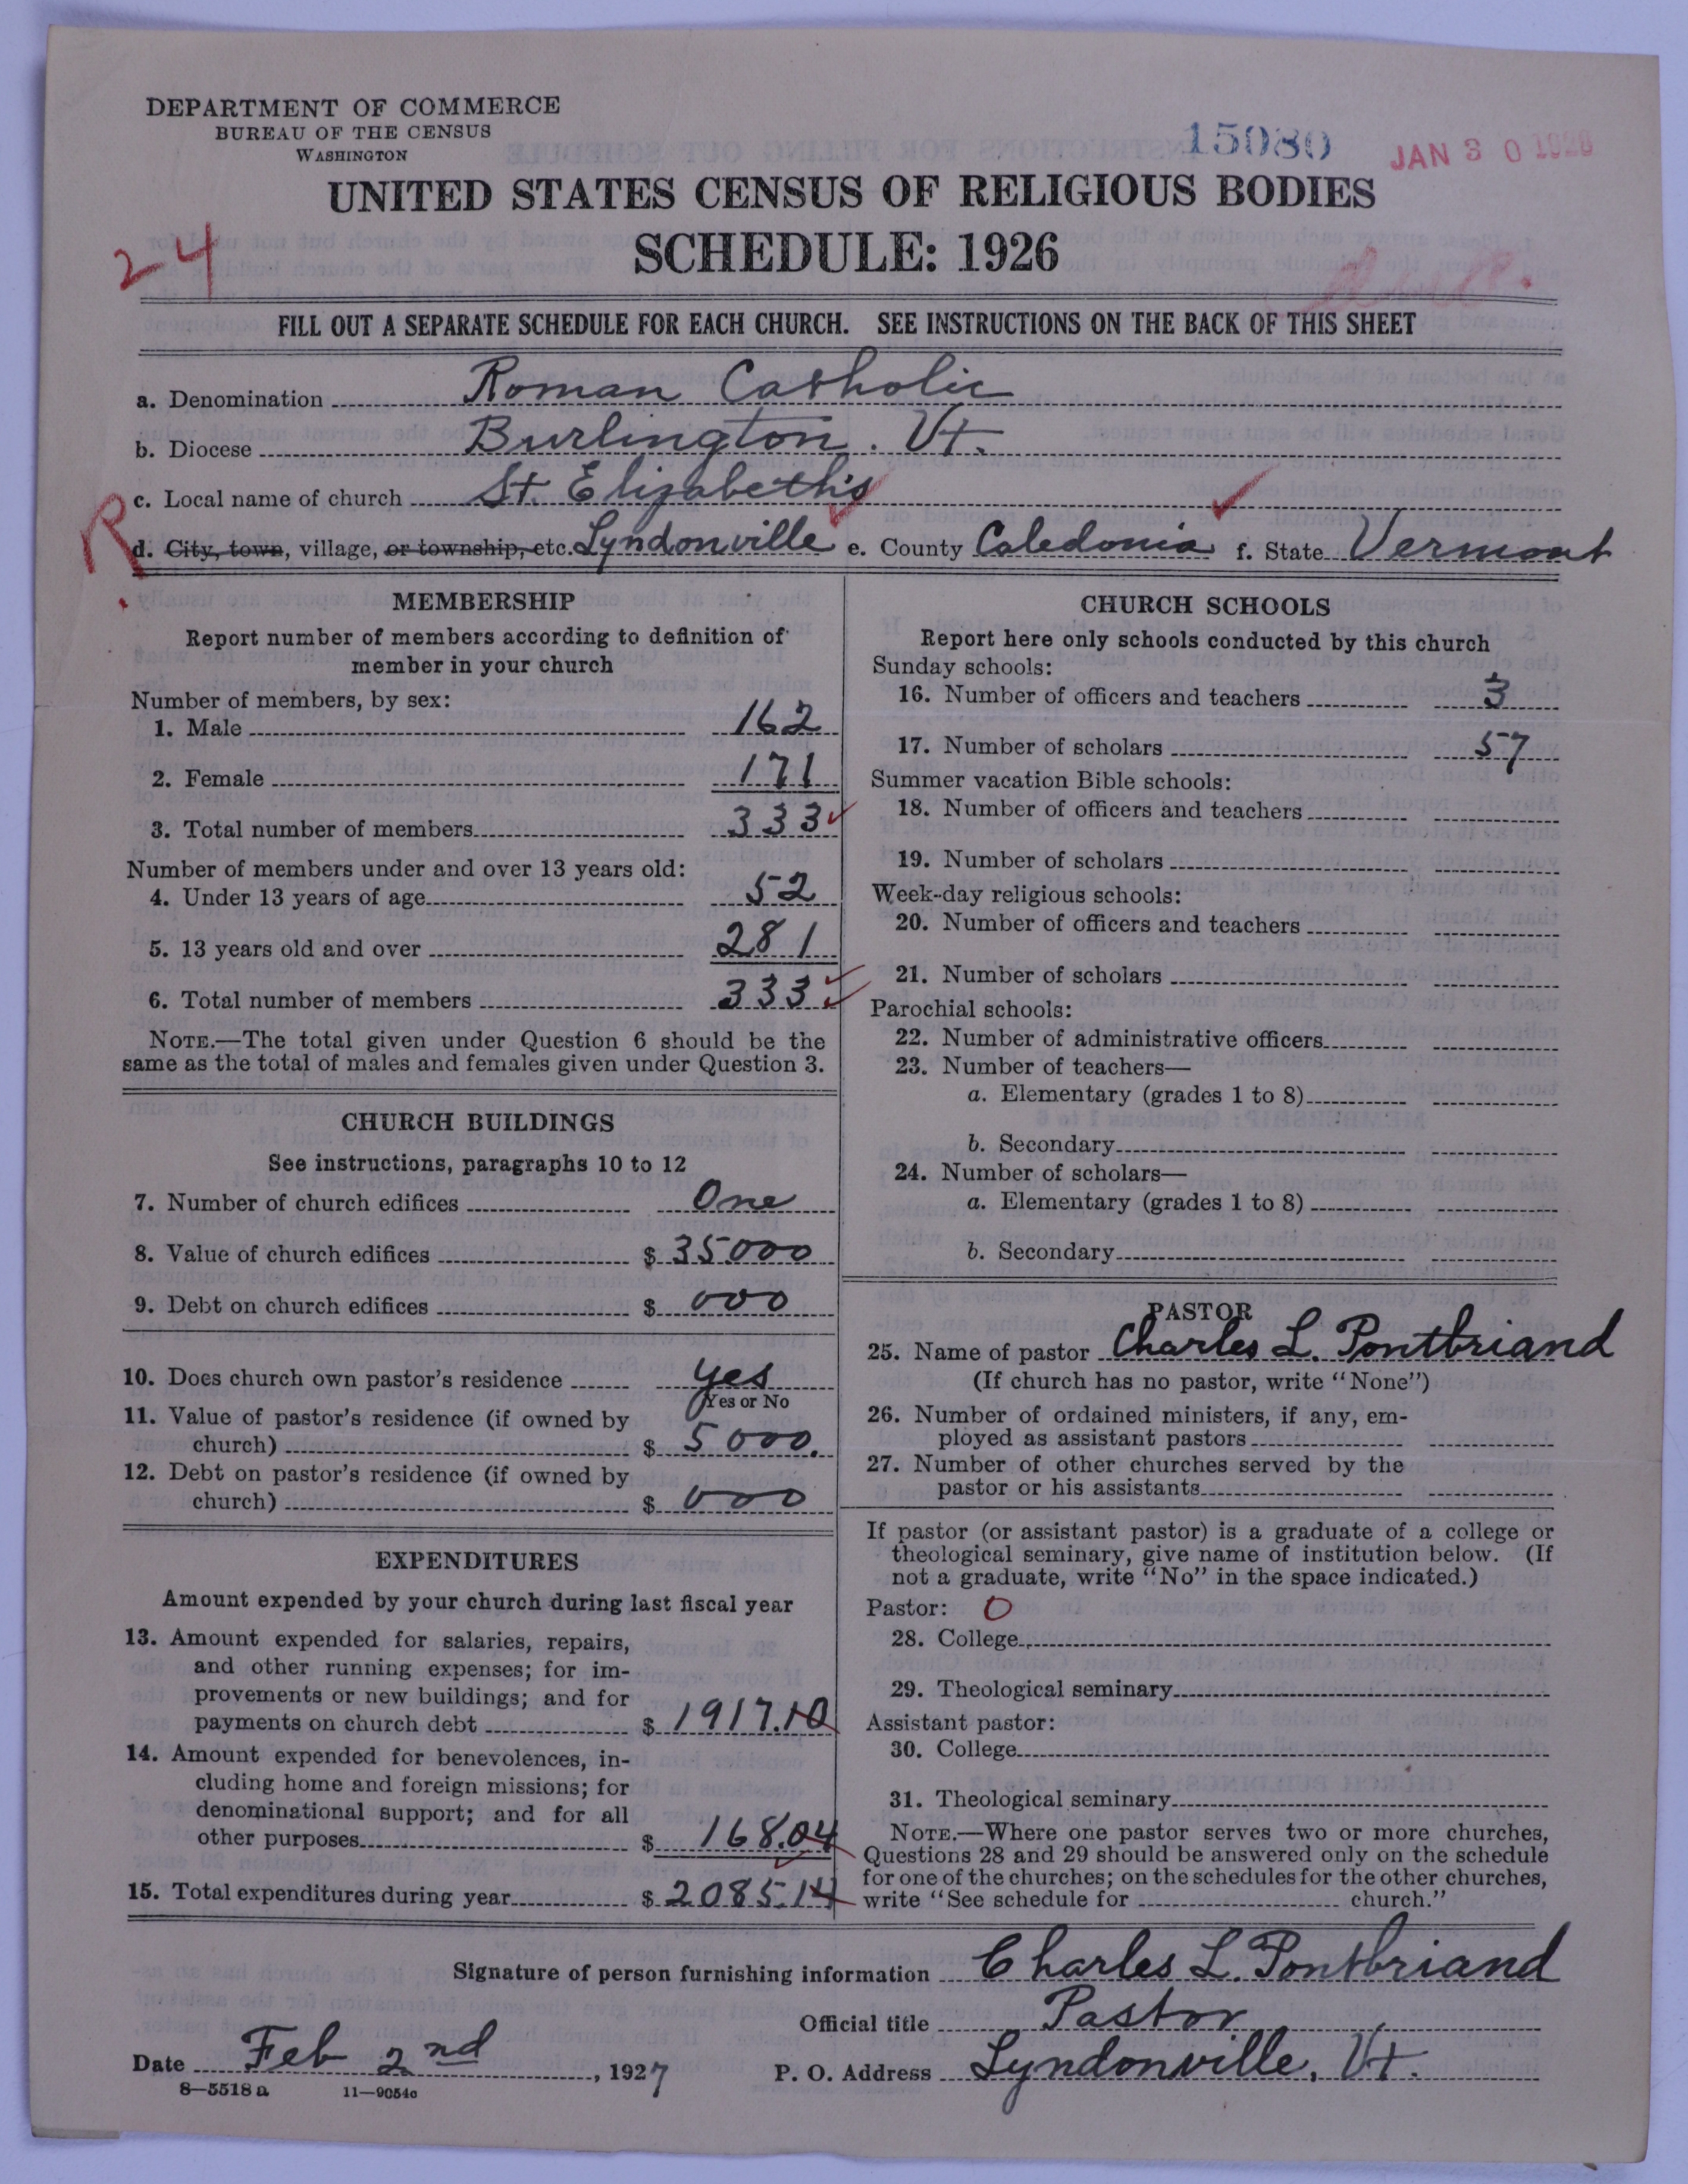 DEPARTMENT OF COMMERCE
BUREAU OF THE CENSUS
WASHINGTON
15080
JAN 30 1928
UNITED STATES CENSUS OF RELIGIOUS BODIES
24
SCHEDULE: 1926
FILL OUT A SEPARATE SCHEDULE FOR EACH CHURCH. SEE INSTRUCTIONS ON THE BACK OF THIS SHEET
a. Denomination Roman Catholic
b. Diocese Burlington. Vt.
c. Local name of church St. Elizabeth's
R.
d. City, town, village, or township, etc. Lyndonville e. County Caledonia f. State Vermont
MEMBERSHIP
Report number of members according to definition of
member in your church
Number of members, by sex:
1. Male 162
2. Female 171
3. Total number of members 333
Number of members under and over 13 years old:
4. Under 13 years of age 52
5. 13 years old and over 281
6. Total number of members 333
NOTE.—The total given under Question 6 should be the
same as the total of males and females given under Question 3.
CHURCH BUILDINGS
See instructions, paragraphs 10 to 12
7. Number of church edifices One
8. Value of church edifices $ 35000
9. Debt on church edifices $ 000
10. Does church own pastor's residence yes
Yes or No
11. Value of pastor's residence (if owned by
church) $ 5000.
12. Debt on pastor's residence (if owned by
church) $ 000
EXPENDITURES
Amount expended by your church during last fiscal year
13. Amount expended for salaries, repairs,
and other running expenses; for im-
provements or new buildings; and for
payments on church debt $ 1917.10
14. Amount expended for benevolences, in-
cluding home and foreign missions; for
denominational support; and for all
other purposes $ 168.04
15. Total expenditures during year $ 2085.14
CHURCH SCHOOLS
Report here only schools conducted by this church
Sunday schools:
16. Number of officers and teachers 3
17. Number of scholars 57
Summer vacation Bible schools:
18. Number of officers and teachers
19. Number of scholars
Week-day religious schools:
20. Number of officers and teachers
21. Number of scholars
Parochial schools:
22. Number of administrative officers
23. Number of teachers—
a. Elementary (grades 1 to 8)
b. Secondary
24. Number of scholars—
a. Elementary (grades 1 to 8)
b. Secondary
PASTOR
25. Name of pastor Charles L. Pontbriand
(If church has no pastor, write "None")
26. Number of ordained ministers, if any, em-
ployed as assistant pastors
27. Number of other churches served by the
pastor or his assistants
If pastor (or assistant pastor) is a graduate of a college or
theological seminary, give name of institution below. (If
not a graduate, write "No" in the space indicated.)
Pastor: 0
28. College
29. Theological seminary
Assistant pastor:
30. College
31. Theological seminary
NOTE.—Where one pastor serves two or more churches,
Questions 28 and 29 should be answered only on the schedule
for one of the churches; on the schedules for the other churches,
write "See schedule for church."
Signature of person furnishing information Charles L. Pontbriand
Official title Pastor
Date Feb 2nd, 1927 P. O. Address Lyndonville, Vt.
8—5518 a 11—9054c